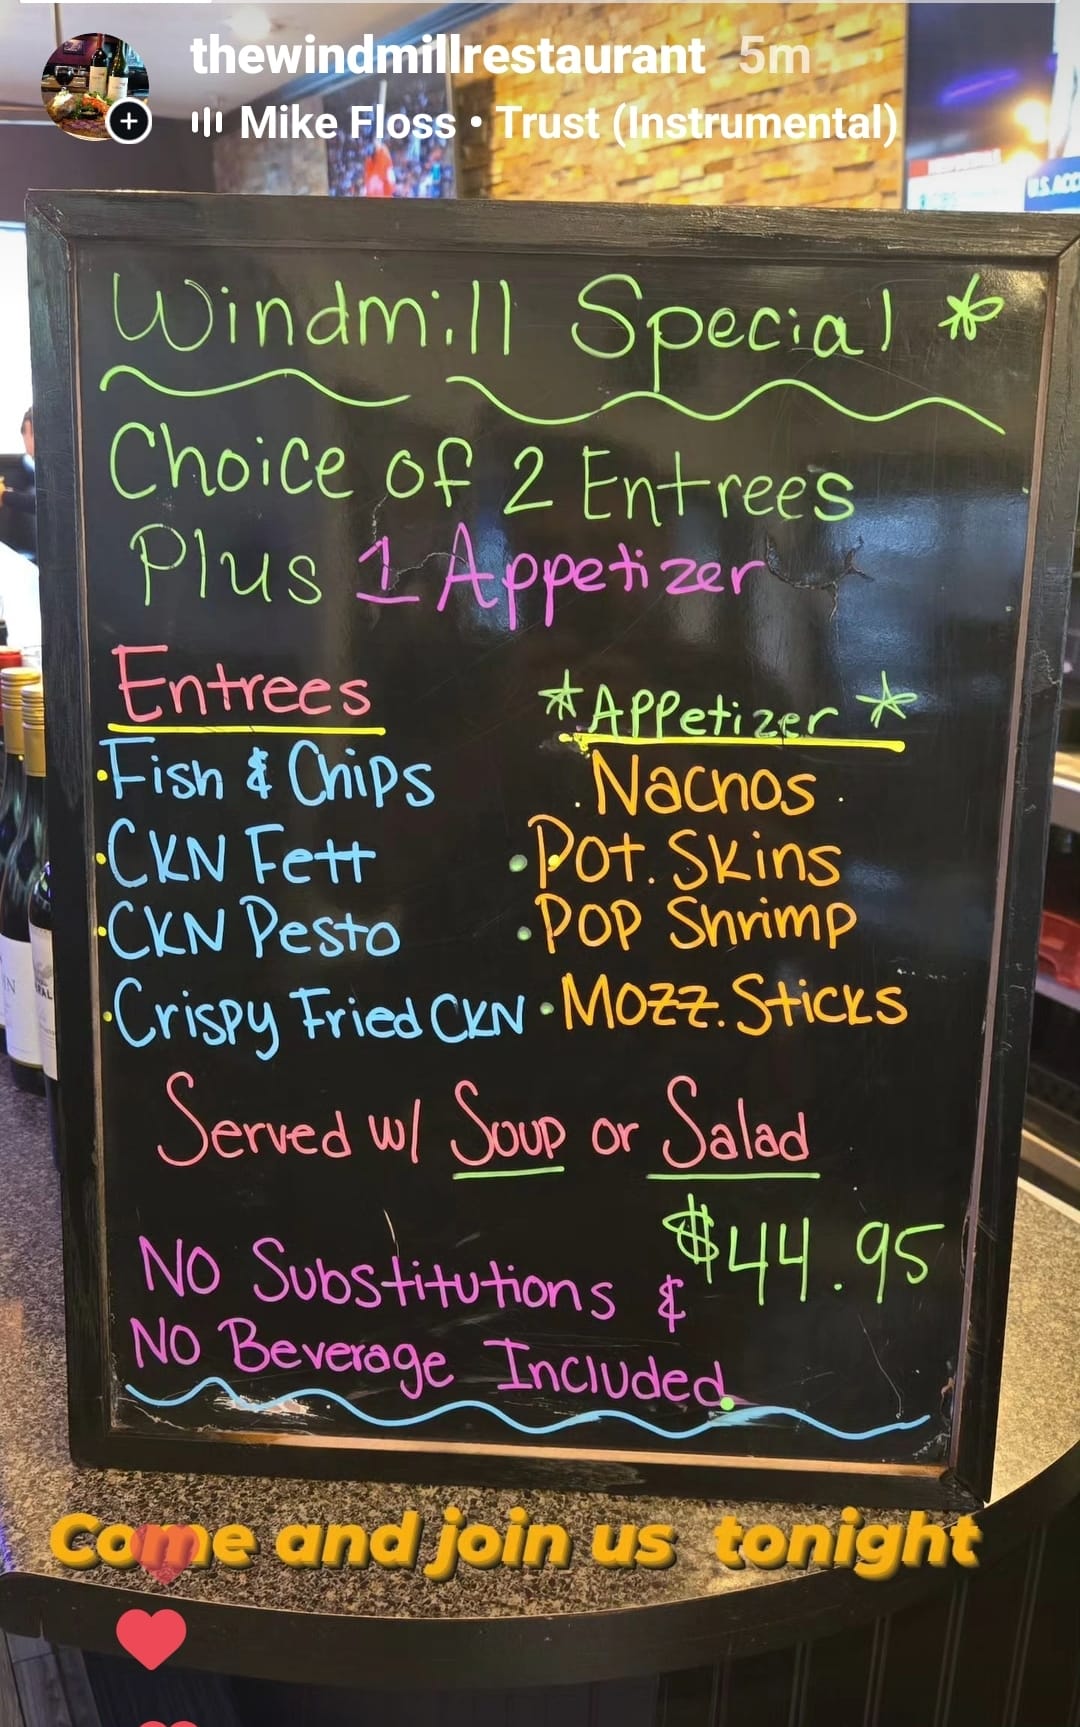 thewindmillrestaurant 5m
Mike Floss • Trust (Instrumental)
U.S. ACC
Windmill Special *
Choice of 2 Entrees
Plus 1 Appetizer
Entrees
*Appetizer*
·Fish & Chips
. Nachos .
·CKN Fett
·Pot. Skins
·CKN Pesto
·POP Shrimp
·Crispy Fried CKN
·Mozz. Sticks
Served w/ Soup or Salad
$44.95
NO Substitutions &
NO Beverage Included.
Come and join us tonight